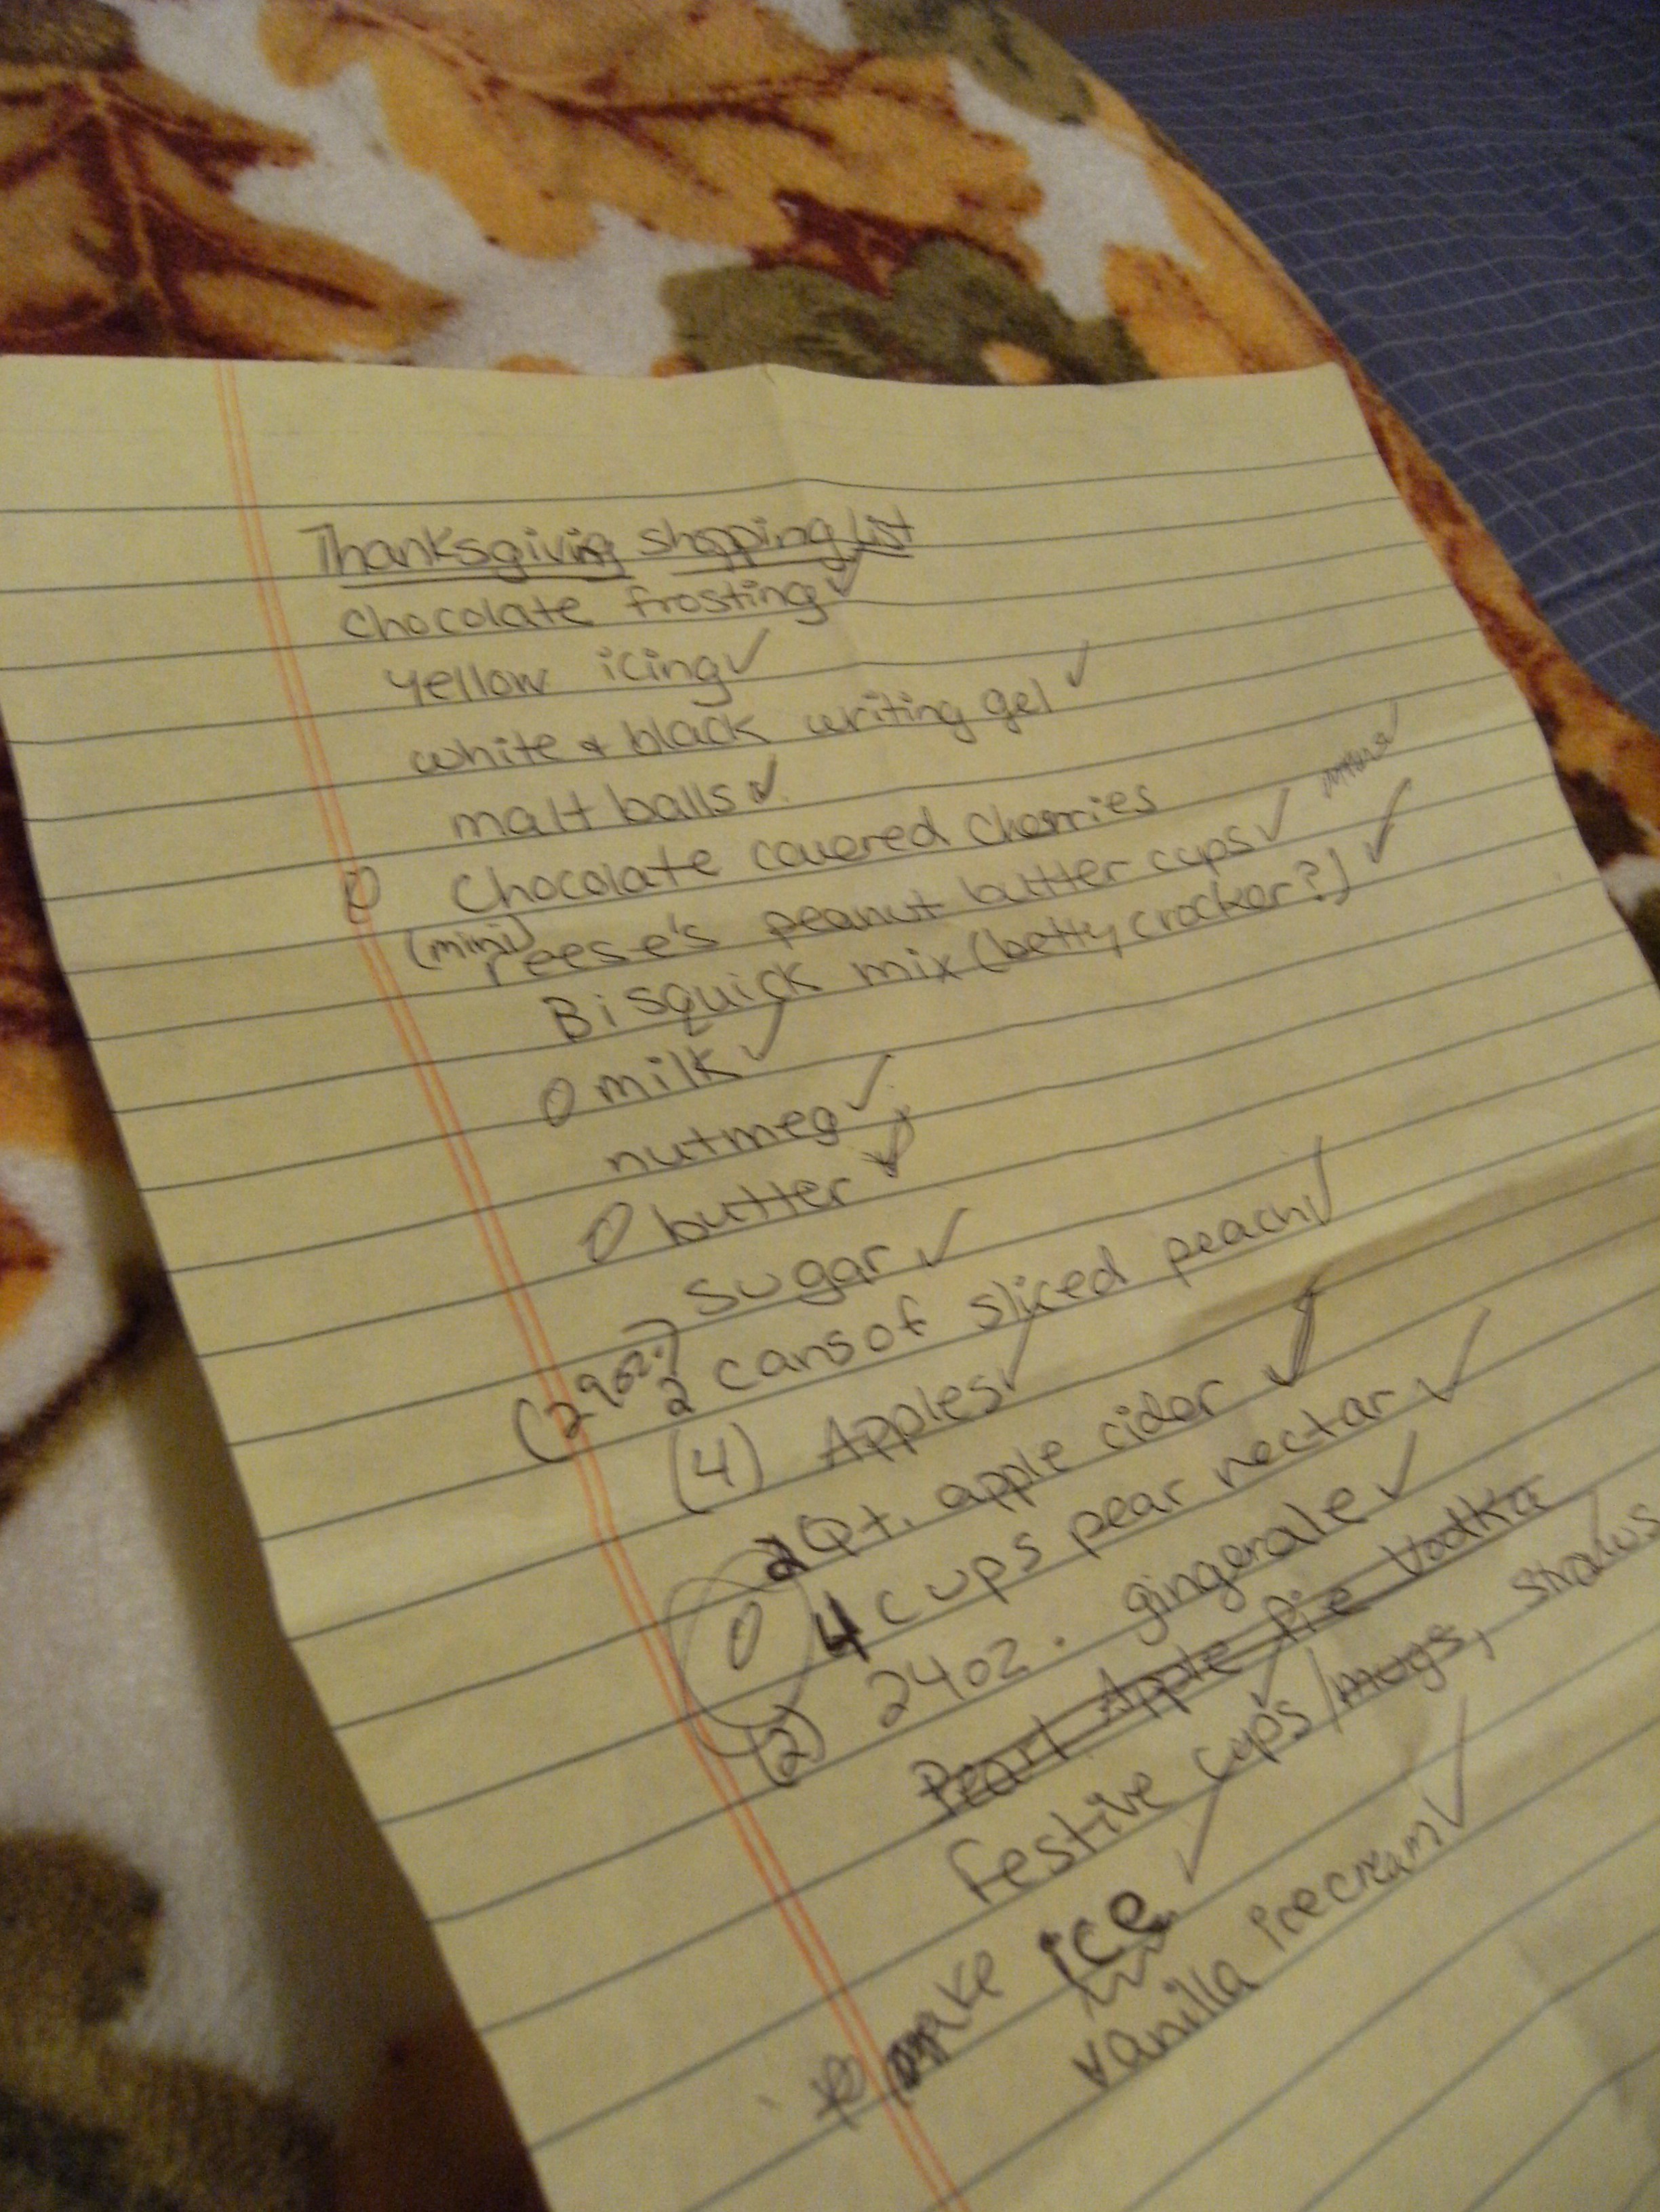 Thanksgiving shopping list
Chocolate frosting ✓
yellow icing ✓
white & black writing gel ✓
malt balls ✓
0 Chocolate covered cherries
(mini) reese's peanut butter cups ✓
Bisquick mix (betty crocker?) ✓
0 milk ✓
nutmeg ✓
0 butter ✓
sugar ✓
(29oz.) 2 cans of sliced peach ✓
(4) Apples ✓
2 Qt. apple cider ✓
0 4 cups pear nectar ✓
(2) 24oz. gingerale ✓
Pearl Apple Pie Vodka
festive cups/mugs, straws
make ice ✓
vanilla icecream ✓